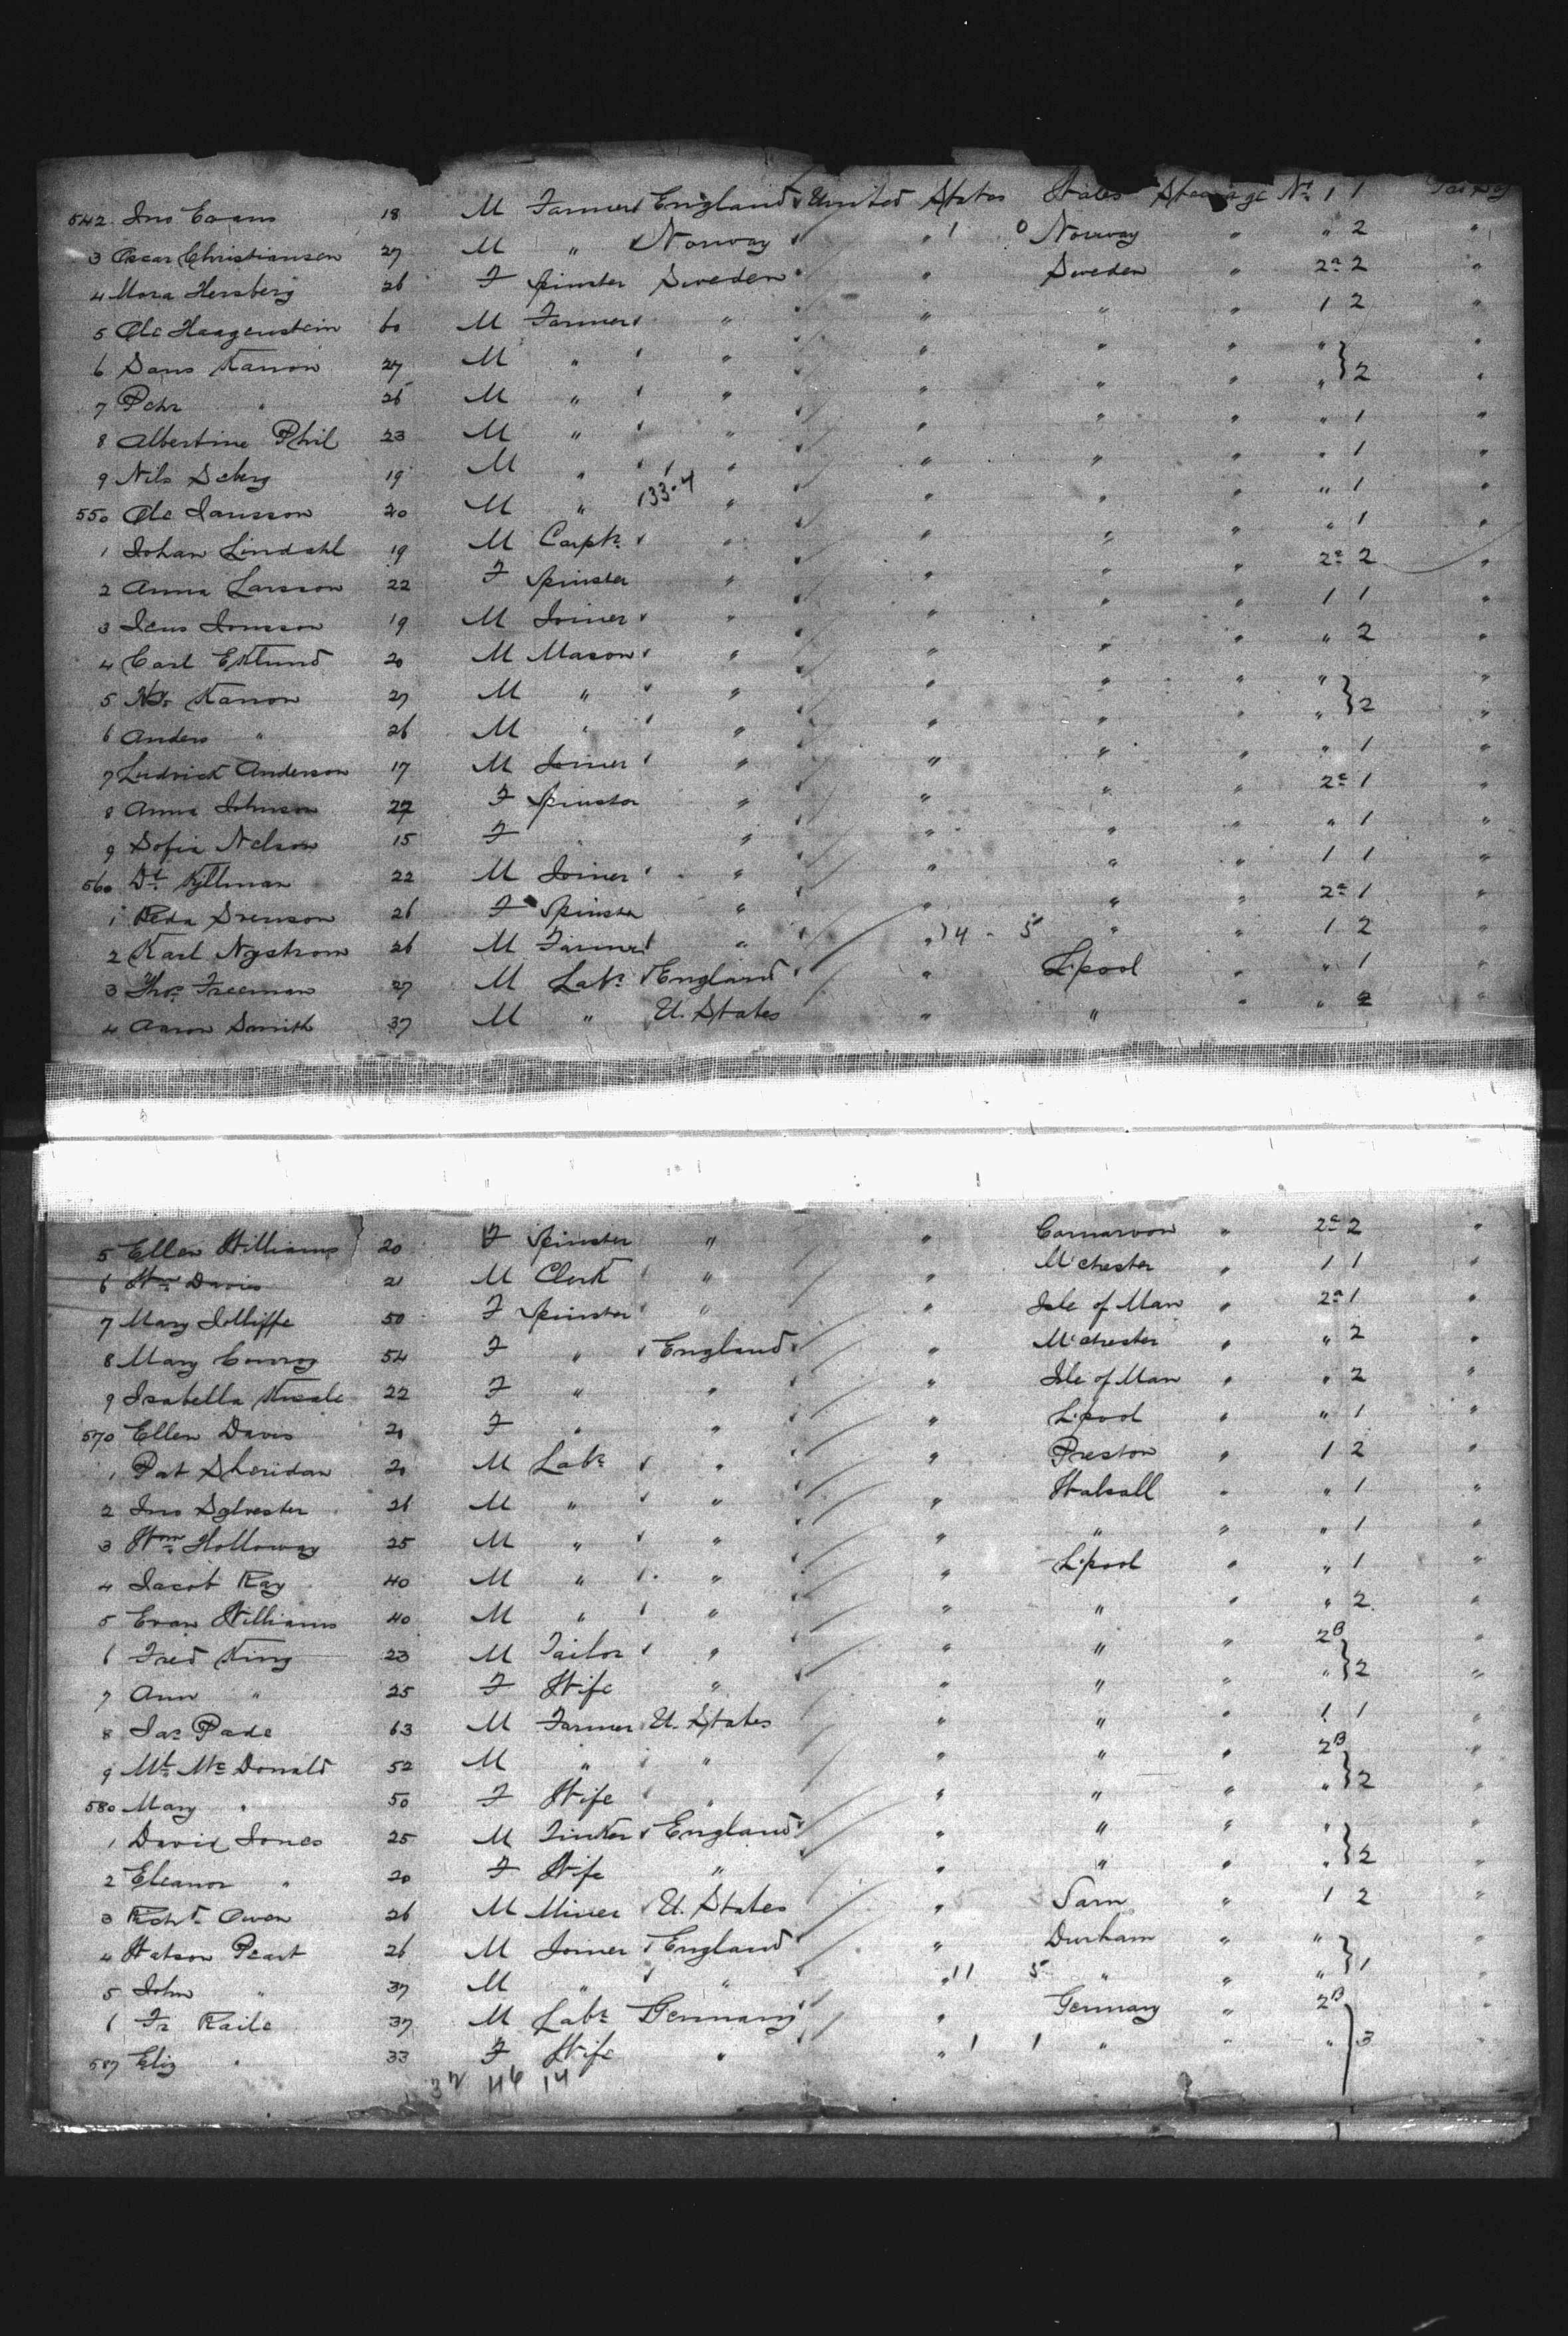 542 Jno Evans 18 M Farmer England United States Wales Steerage No 1 1
3 Oscar Christiansen 27 M " Norway " 1 0 Norway " " 2 "
4 Mora Hersberg 26 F Spinster Sweden " Sweden " 2a 2 "
5 Ole Haagenstein 60 M Farmer " " " " 1 2 "
6 Sans Karron 27 M " " " " " " "
7 Pehr " 26 M " " " " " " } 2 "
8 Albertine Phil 23 M " " " " " " 1 "
9 Nils Seberg 19 M " " " " " " 1 "
550 Ole Jansson 20 M " 133-4 " " " " " 1 "
1 Johan Lindahl 19 M Carptr " " " " " 1 "
2 Anna Larsson 22 F Spinster " " " " 2a 2 "
3 Jens Jonsson 19 M Joiner " " " " 1 1 "
4 Carl Eklund 20 M Mason " " " " " 2 "
5 Karron 27 M " " " " " " "
6 Anders " 26 M " " " " " " } 2 "
7 Ludvick Anderson 17 M Joiner " " " " " 1 "
8 Anna Johnson 27 F Spinster " " " " 2a 1 "
9 Sofia Nelson 15 F " " " " " " 1 "
560 Kjllman 22 M Joiner " " " " 1 1 "
1 Reda Svenson 26 F Spinster " " " " 2a 1 "
2 Karl Nystrom 26 M Farmer " " 14 - 5 " " 1 2 "
3 Thos Freeman 27 M Labr England " L'pool " " 1 "
4 Aaron Smith 37 M " U. States " " " " 2 "
5 Ellen Williams } 20 F Spinster " " Carnarvon " 2a 2 "
6 Wm Davis 21 M Clerk " " M'chester " 1 1 "
7 Mary Jolliffe 50 F Spinster " " Isle of Man " 2a 1 "
8 Mary Conroy 54 F " England " M'chester " " 2 "
9 Isabella Kneale 22 F " " " Isle of Man " " 2 "
570 Ellen Davis 20 F " " " L'pool " " 1 "
1 Pat Sheridan 20 M Labr " " Preston " 1 2 "
2 Jno Sylvester 26 M " " " Walsall " " 1 "
3 Wm Holloway 25 M " " " " " " 1 "
4 Jacob Ray 40 M " " " L'pool " " 1 "
5 Evan Williams 40 M " " " " " " 2 "
6 Fred King 23 M Tailor " " " " 2B "
7 Ann " 25 F Wife " " " " " } 2 "
8 Jas Pade 63 M Farmer U. States " " " 1 1 "
9 Mt McDonald 52 M " " " " " 2B "
580 Mary " 50 F Wife " " " " " } 2 "
1 David Jones 25 M Tinker England " " " " "
2 Eleanor " 20 F Wife " " " " " } 2 "
3 Richd Owen 26 M Miner U. States " Sarn " 1 2 "
4 Watson Peart 26 M Joiner England " Durham " " "
5 John " 37 M " " " 11 5 " " " } 1 "
6 Fr Raile 37 M Labr Germany " Germany " 2B "
587 Eliz " 33 F Wife " " 1 1 " " " } 3 "
32 46 14